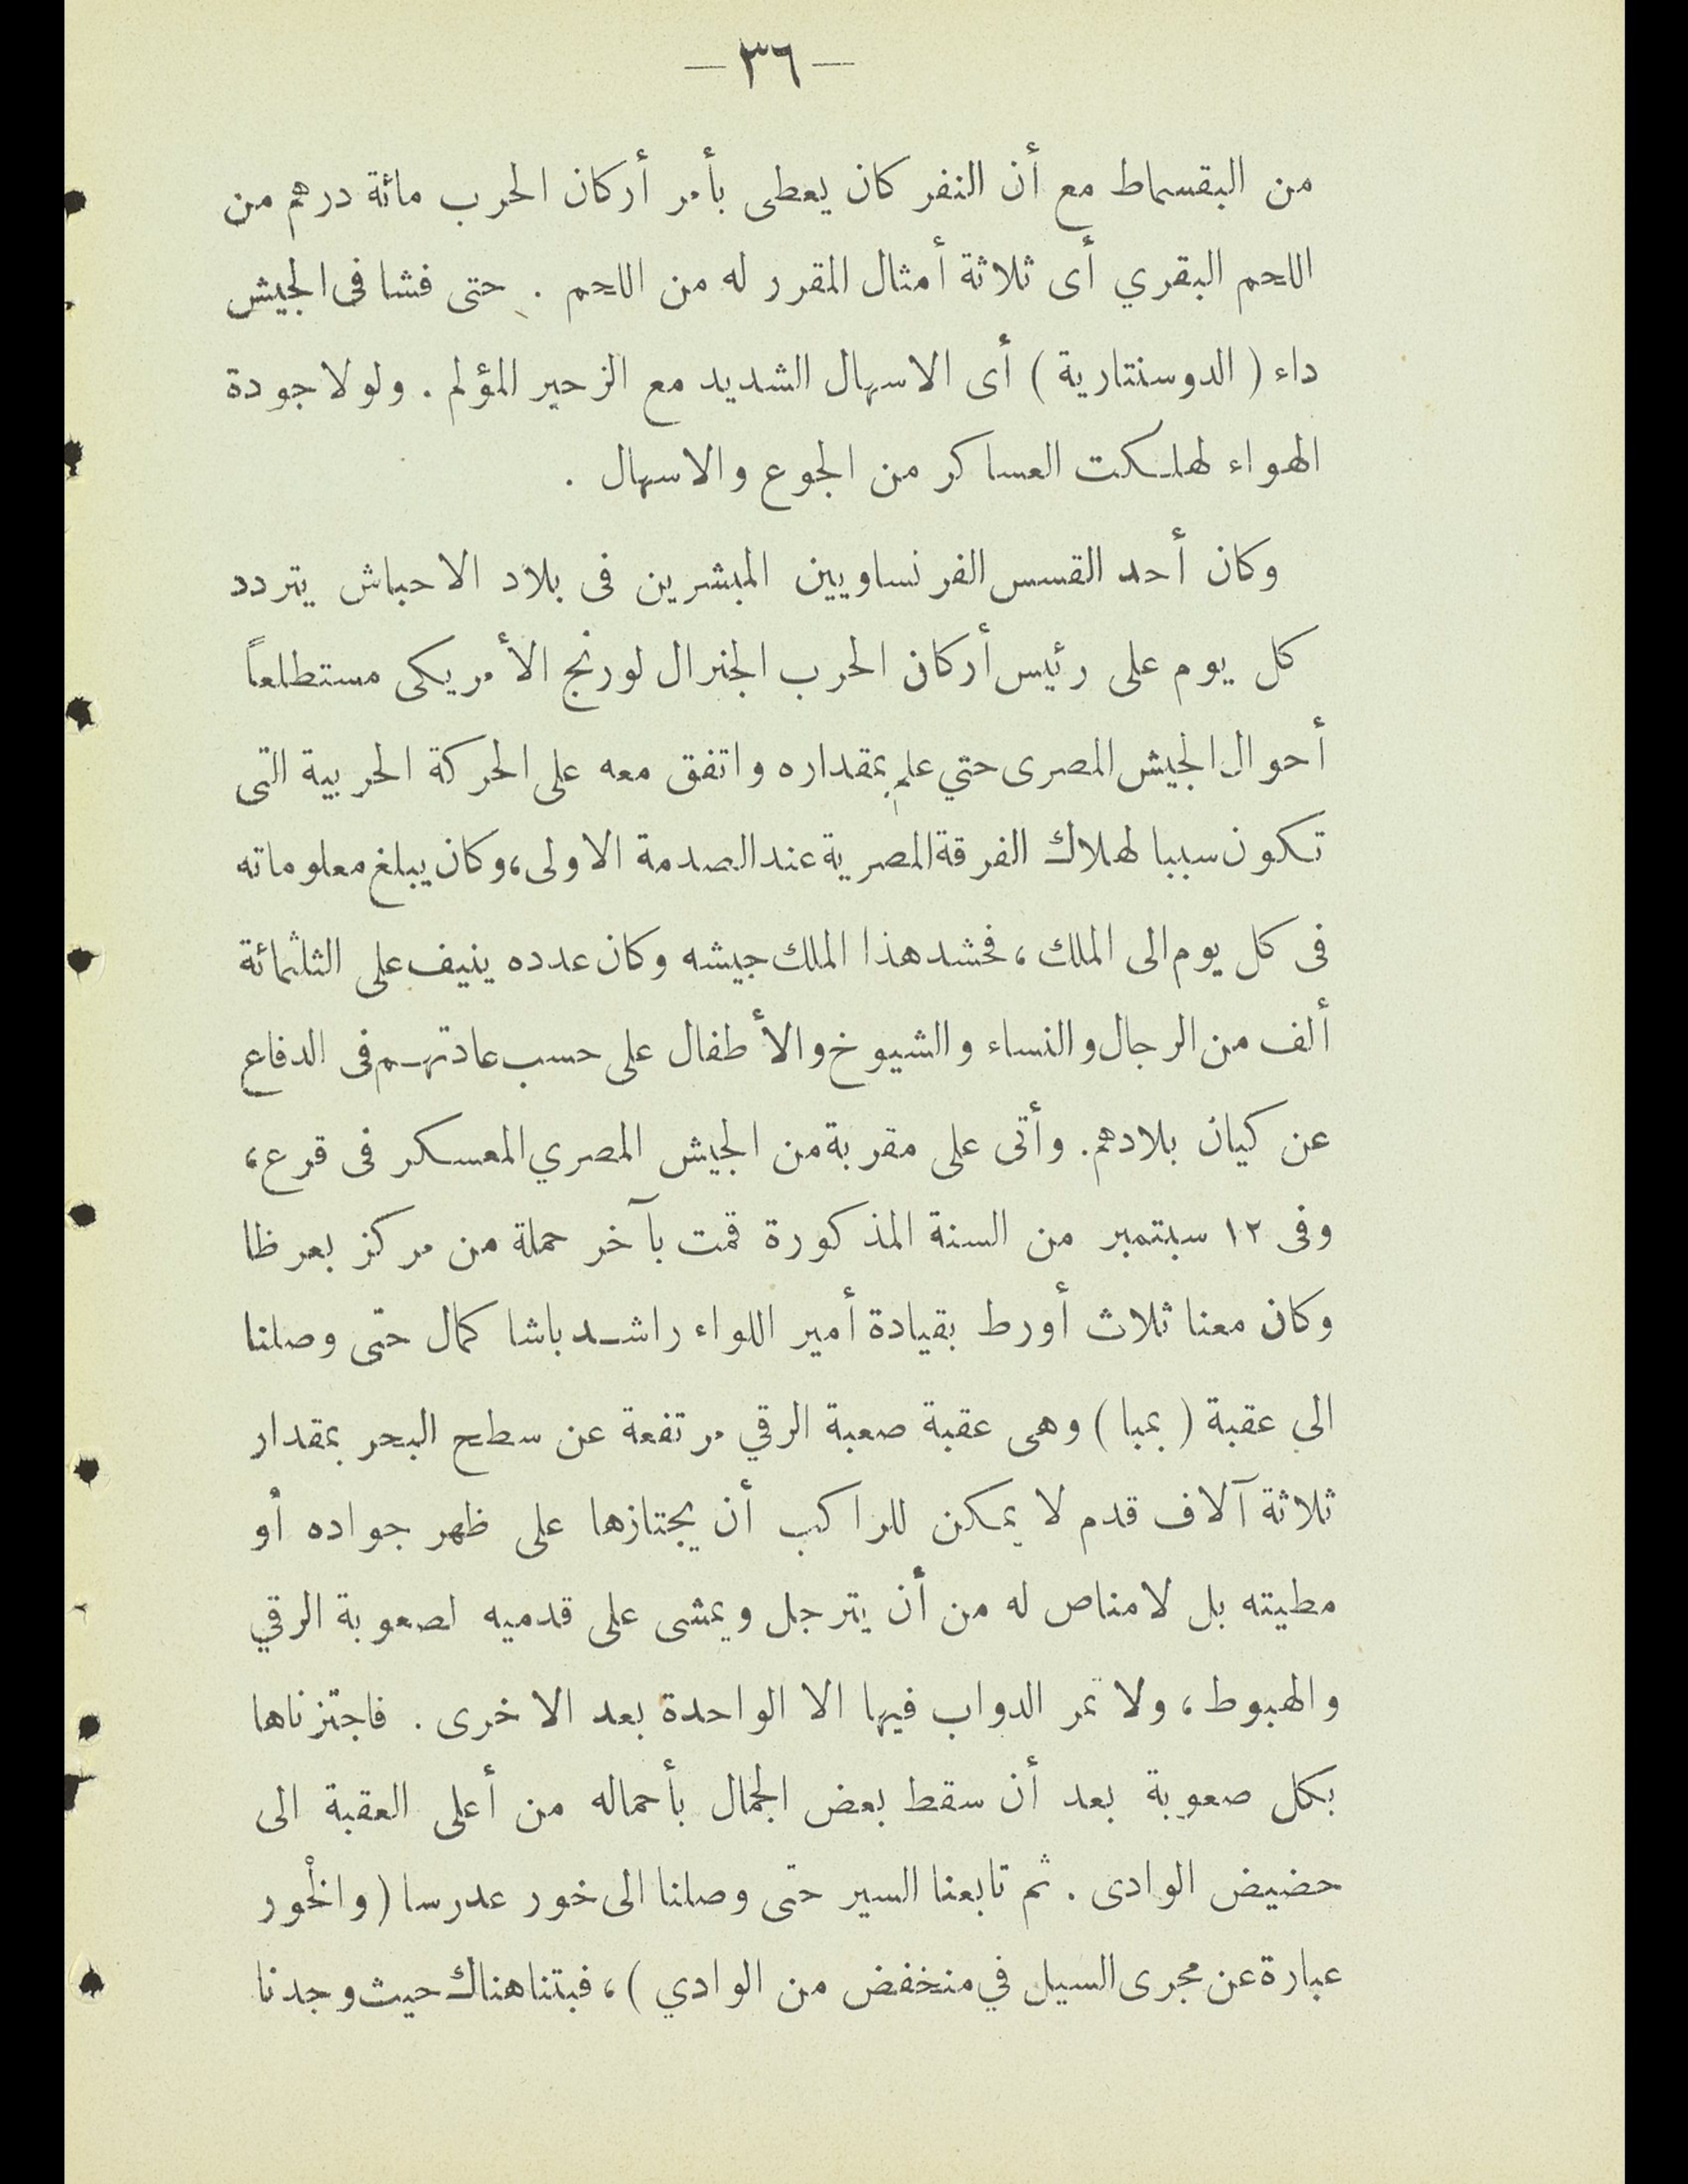 — ٣٦ —
من البقسماط مع أن النفر كان يعطى بأمر أركان الحرب مائة درهم من
اللحم البقري أى ثلاثة أمثال المقرر له من اللحم . حتى فشا فى الجيش
داء ( الدوسنتارية ) أى الاسهال الشديد مع الزحير المؤلم . ولولا جودة
الهواء لهلكت العساكر من الجوع والاسهال .
وكان أحد القسس الفرنساويين المبشرين فى بلاد الاحباش يتردد
كل يوم على رئيس أركان الحرب الجنرال لورنج الأمريكى مستطلعاً
أحوال الجيش المصرى حتي علم بمقداره واتفق معه على الحركة الحربية التى
تكون سببا لهلاك الفرقة المصرية عند الصدمة الاولى، وكان يبلغ معلوماته
فى كل يوم الى الملك ، فحشد هذا الملك جيشه وكان عدده ينيف على الثلثمائة
ألف من الرجال والنساء والشيوخ والأطفال على حسب عادتهم فى الدفاع
عن كيان بلادهم. وأتى على مقربة من الجيش المصري المعسكر فى قرع ،
وفى ١٢ سبتمبر من السنة المذكورة قمت بآخر حملة من مركز بعرظا
وكان معنا ثلاث أورط بقيادة أمير اللواء راشد باشا كمال حتى وصلنا
الي عقبة ( بمبا ) وهى عقبة صعبة الرقي مرتفعة عن سطح البحر بمقدار
ثلاثة آلاف قدم لا يمكن للراكب أن يجتازها على ظهر جواده أو
مطيته بل لامناص له من أن يترجل ويمشى على قدميه لصعوبة الرقي
والهبوط ، ولا تمر الدواب فيها الا الواحدة بعد الاخرى . فاجتزناها
بكل صعوبة بعد أن سقط بعض الجمال بأحماله من أعلى العقبة الى
حضيض الوادى . ثم تابعنا السير حتى وصلنا الى خور عدرسا ( والخور
عبارة عن مجرى السيل في منخفض من الوادي ) ، فبتنا هناك حيث وجدنا